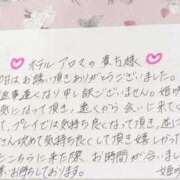 ホテル アロスの貴方様
はお誘い頂きありがとうございました。
返事遅くなり申し訳ございません。
になって頂き、遠くから会いに来てく
て、プレイでは気持ち良くなって頂き、逆に
さん攻めて気持ち良くして頂き嬉しかった
とこちらに来た際、お時間が合いまし
お待ちしております。